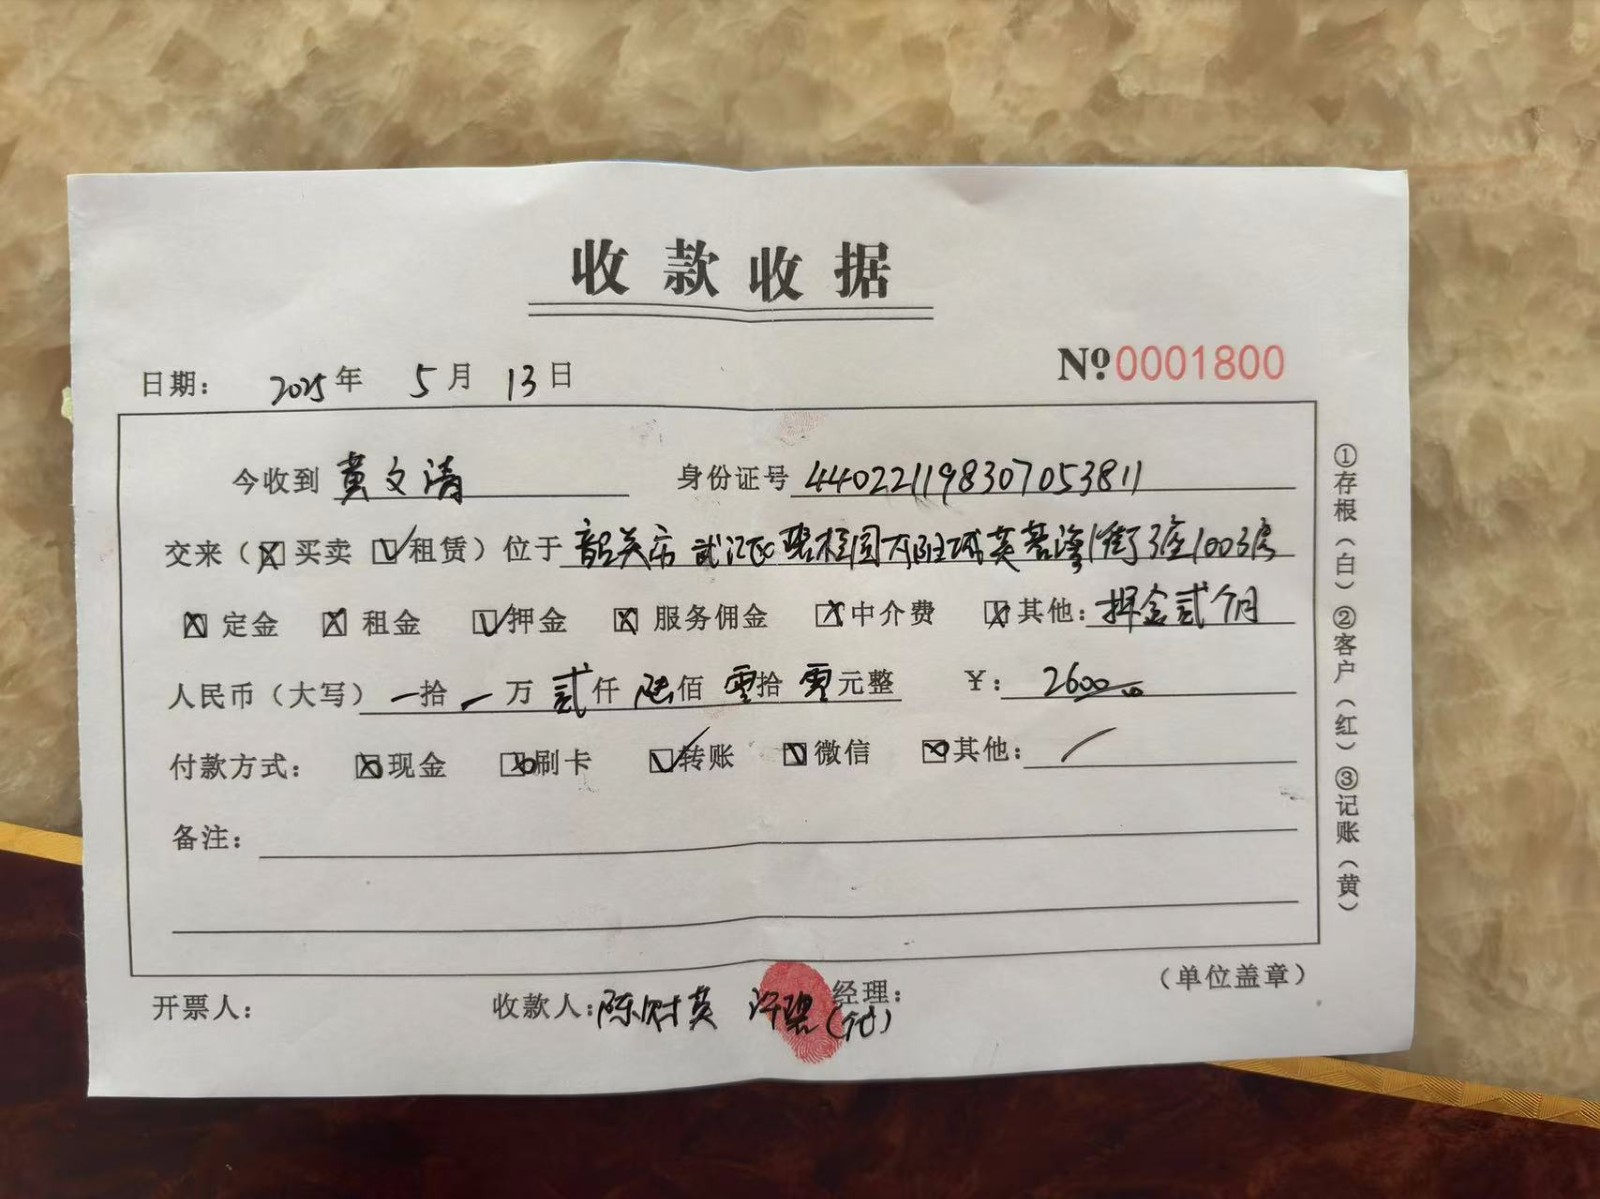 收款收据
日期： 2025年 5月 13日
№0001800
今收到 黄文清 身份证号 440221198307053811
交来（☒买卖 ☑租赁）位于 韶关市 武江区 碧桂园 芙蓉 1街3座1003房
☒定金 ☒租金 ☑押金 ☒服务佣金 ☒中介费 ☒其他：押金贰个月
人民币（大写）一拾一万贰仟陆佰零拾零元整 ￥：2600.00
付款方式： ☒现金 ☒刷卡 ☑转账 ☒微信 ☒其他： /
备注：
开票人： 收款人：陈财英 许碧（代） 经理： （单位盖章）
①存根（白）②客户（红）③记账（黄）